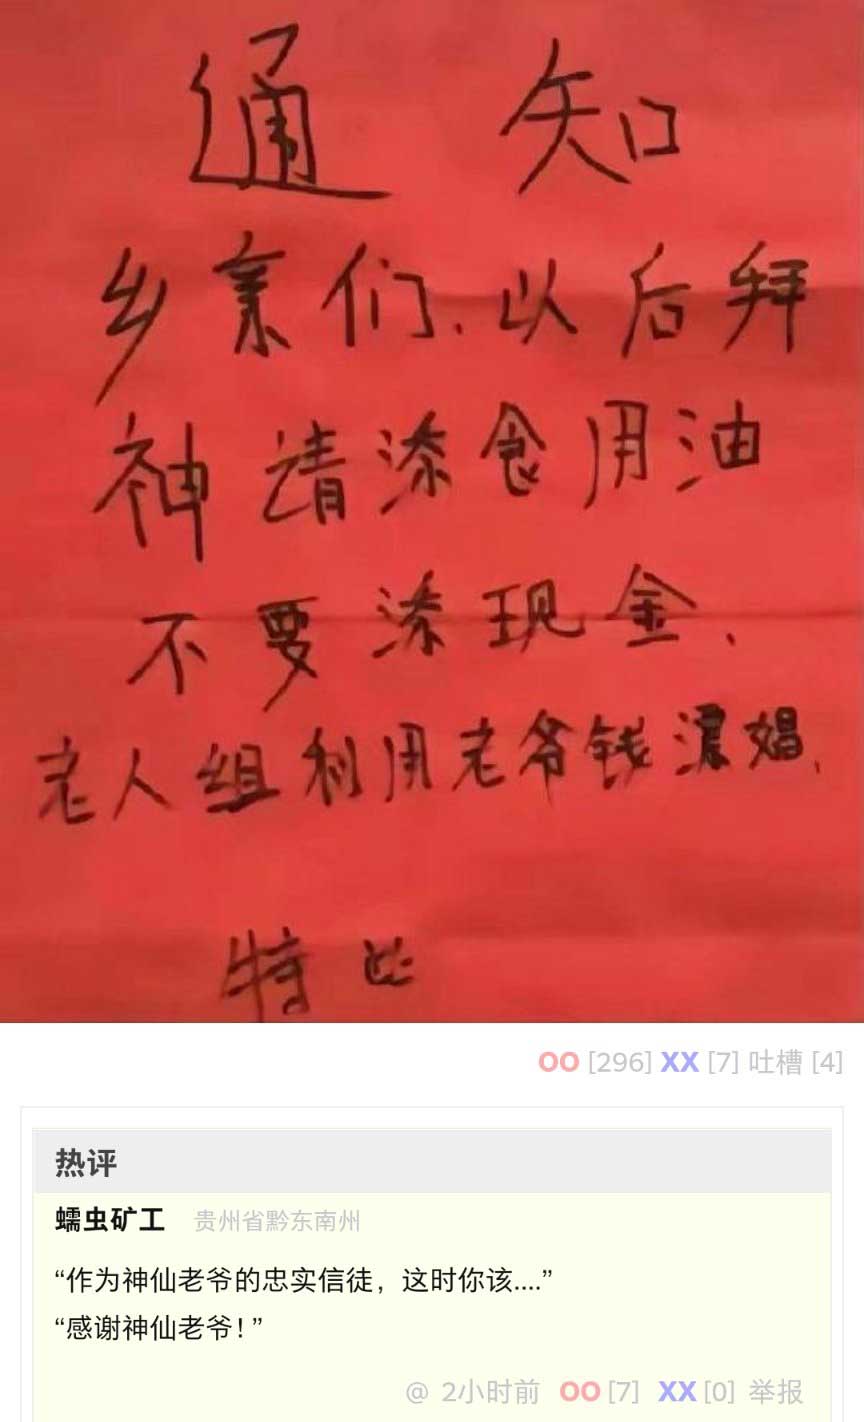 通知
乡亲们、以后拜
神请添食用油
不要添现金、
老人组利用老爷钱 娼、
特此
OO [296] XX [7] 吐槽 [4]
热评
蠕虫矿工 贵州省黔东南州
“作为神仙老爷的忠实信徒，这时你该....”
“感谢神仙老爷！”
@ 2小时前 OO [7] XX [0] 举报